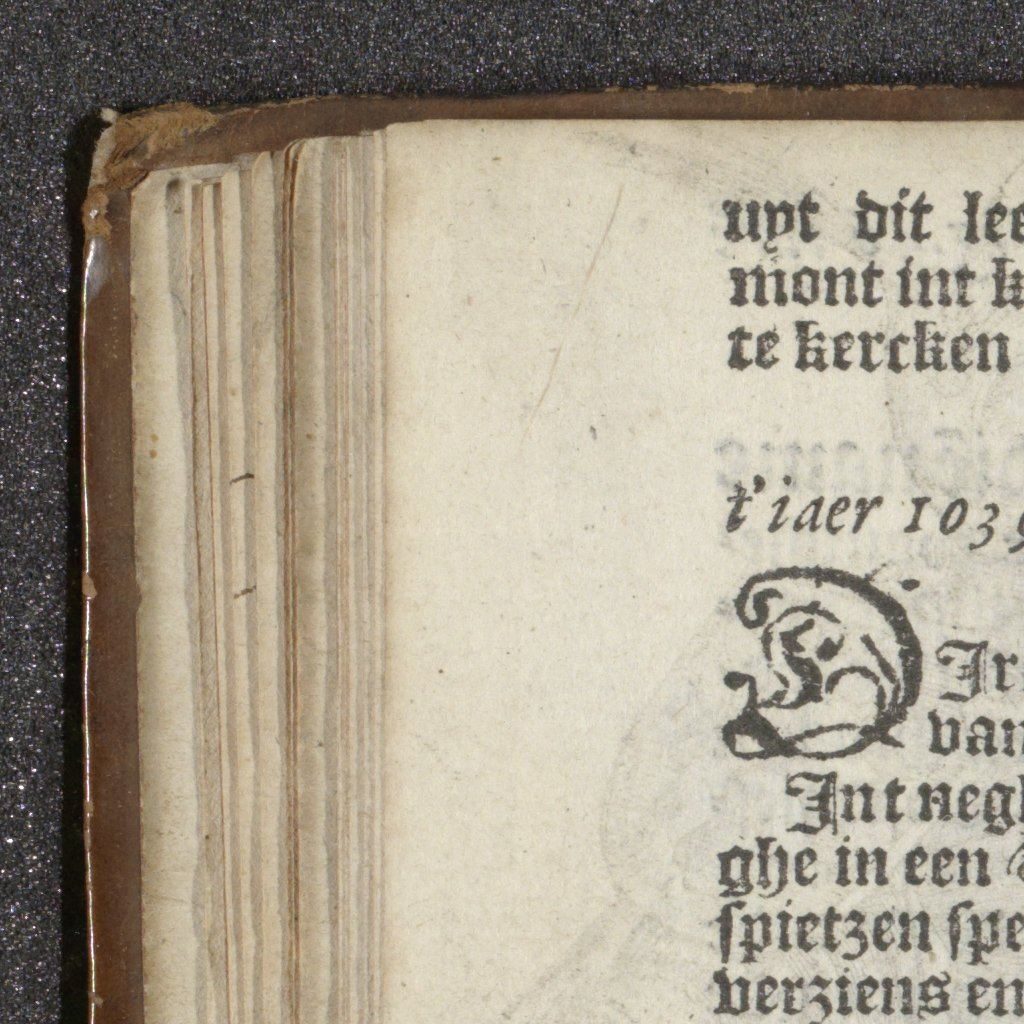 uyt dit lee
mont int k
te kercken
t'iaer 1039
DIr
van
Int negh
ghe in een
spietzen spe
verziens en